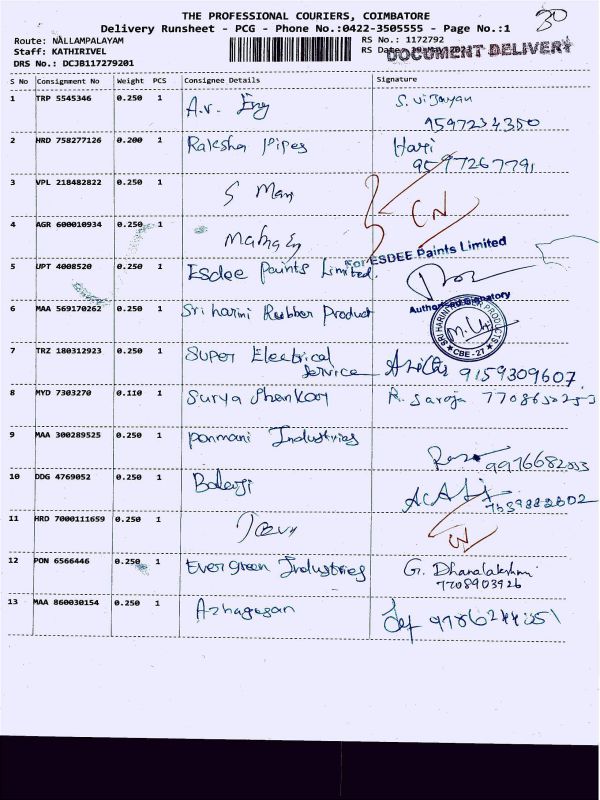 THE PROFESSIONAL COURIERS, COIMBATORE
Delivery Runsheet - PCG - Phone No.:0422-3505555 - Page No.:1
30
Route: NALLAMPALAYAM
RS No.: 1172792
Staff: KATHIRIVEL
RS Date:
DOCUMENT DELIVERY
DRS No.: DCJB117279201
S No Consignment No Weight PCS Consignee Details Signature
1 TRP 5545346 0.250 1 A.v. Eng S. Vijayan
9597234350
2 HRD 758277126 0.200 1 Raksha Pipes Hari
95977267791
3 VPL 218482822 0.250 1 S Man
CN
4 AGR 600010934 0.250 1
For ESDEE Paints Limited
5 UPT 4008520 0.250 1 Esdee Paints Limited.
Authorised Signatory
6 MAA 569170262 0.250 1 Sri harini Rubber Product
SRI HARINI RUBBER PRODUCTS
CBE-27
7 TRZ 180312923 0.250 1 Super Electrical
Service 9159309607
8 MYD 7303270 0.110 1 Surya Shankar R. Saroja 7708650253
9 MAA 300289525 0.250 1 Ponmani Industries
10 DDG 4769052 0.250 1 Balaji
11 HRD 7000111659 0.250 1
12 PON 6566446 0.250 1 Evergreen Industries G. Dhanalakshmi
7708903926
13 MAA 860030154 0.250 1 Azhagesan